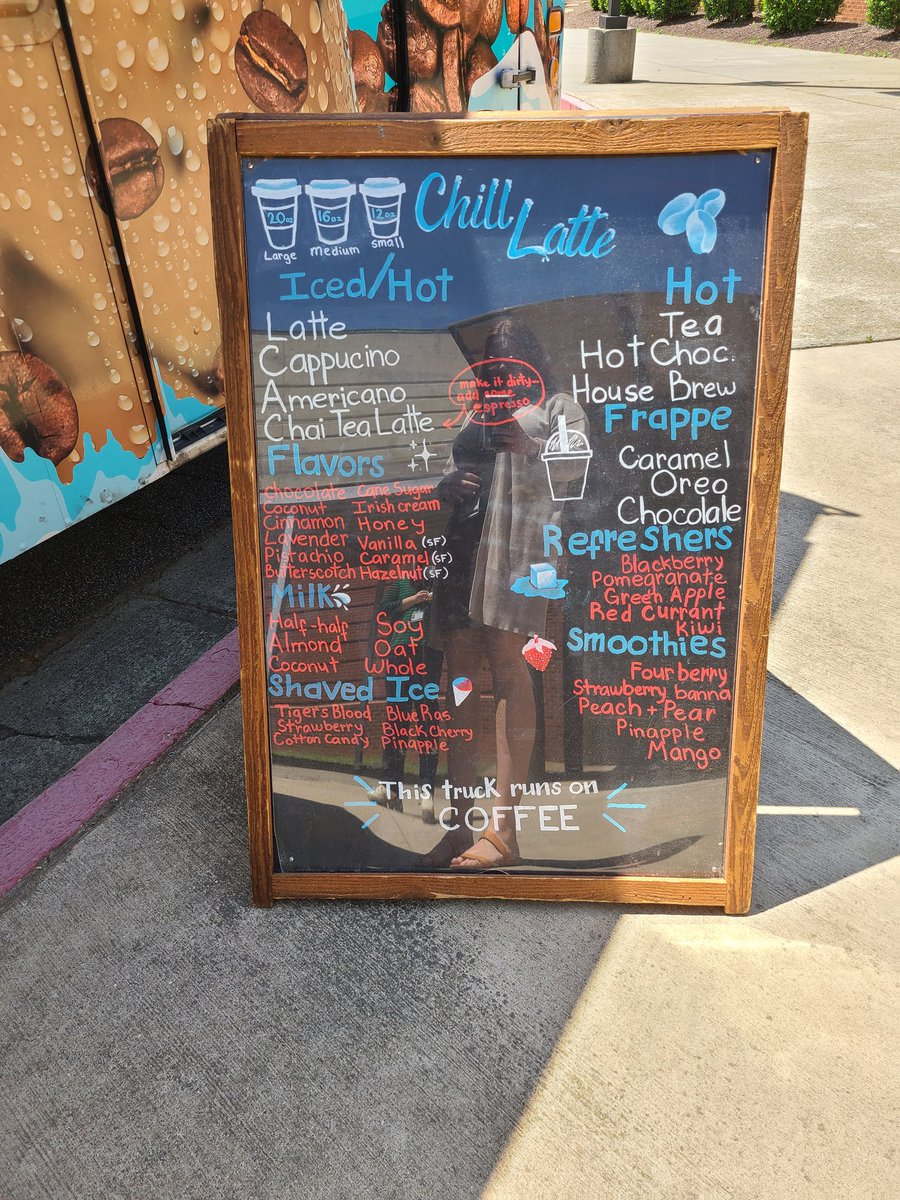 20oz 16oz 12oz
Large Medium Small
Chill Latte
Iced/Hot
Latte
Cappucino
Americano
Chai Tea Latte
make it dirty-
add some
espresso
Flavors
Chocolate Cane Sugar
Coconut Irish cream
Cinnamon Honey
Lavender Vanilla (SF)
Pistachio Caramel (SF)
Butterscotch Hazelnut (SF)
Milk
Half-half Soy
Almond Oat
Coconut Whole
Shaved Ice
Tigers Blood Blue Ras.
Strawberry Black Cherry
Cotton Candy Pinapple
Hot
Tea
Hot Choc.
House Brew
Frappe
Caramel
Oreo
Chocolate
Refreshers
Blackberry
Pomegranate
Green Apple
Red Currant
Kiwi
Smoothies
Four berry
Strawberry banna
Peach + Pear
Pinapple
Mango
This truck runs on
COFFEE